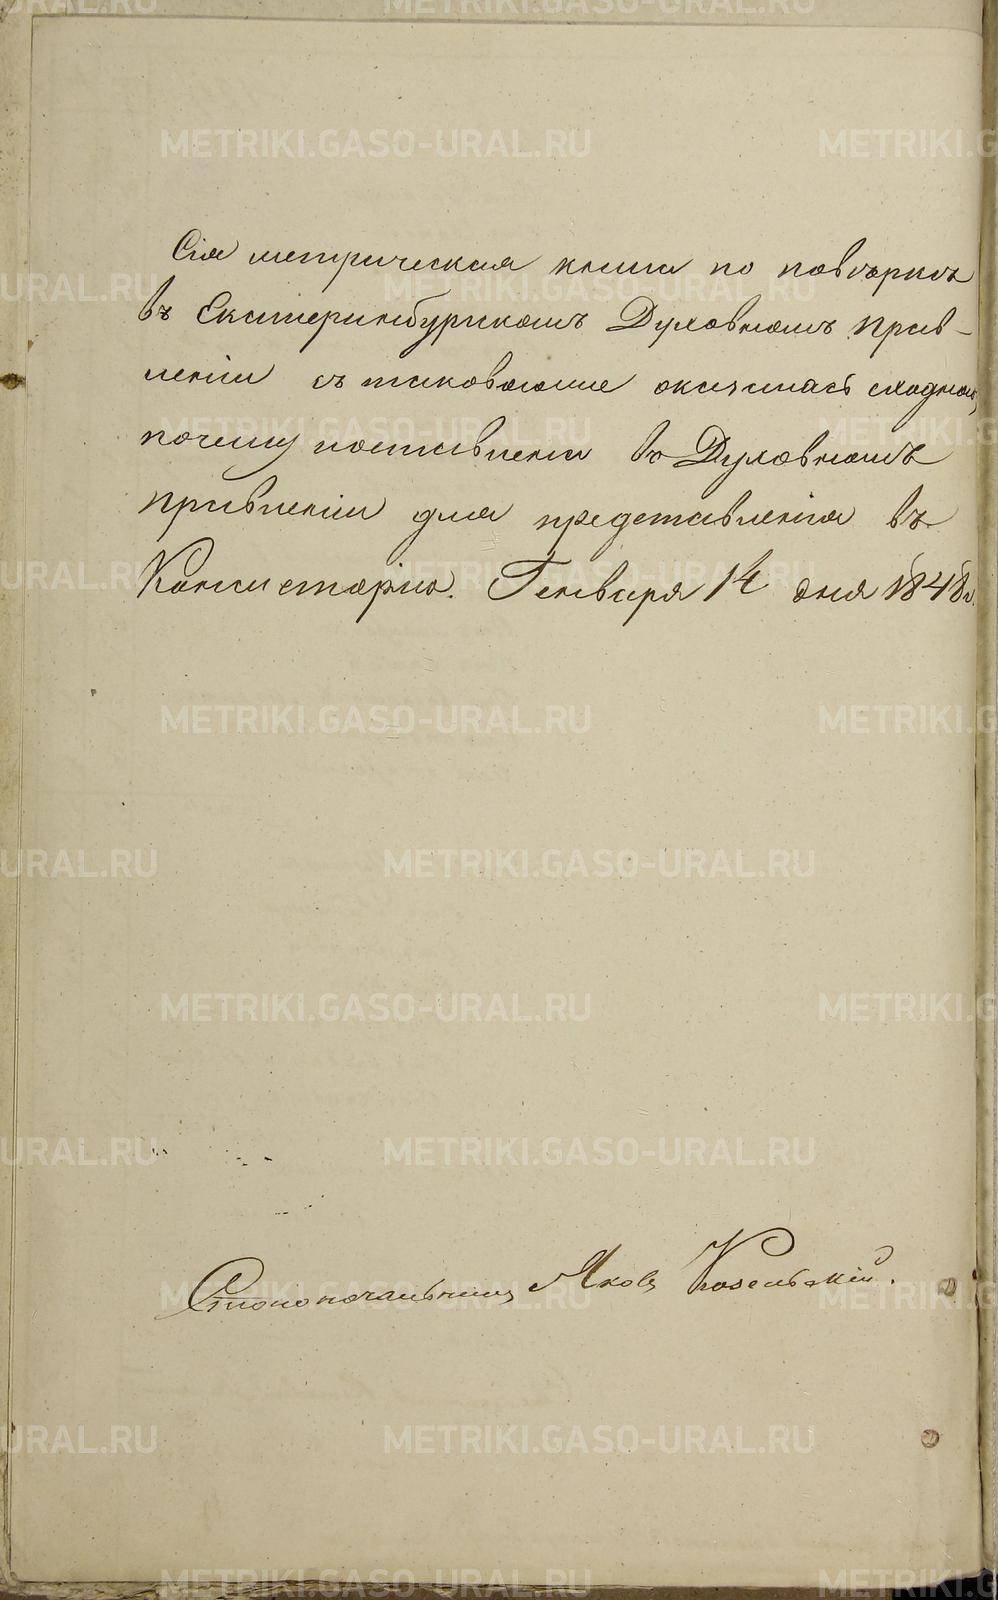 Сія метрическая книга по повѣркѣ
въ Екатеринбургскомъ Духовномъ прав-
леніи съ таковыми оказалась сходною,
почему поставлена въ Духовномъ
правленіи для представленія въ
Консисторію. Генваря 14 дня 1848 г.
Столоначальникъ Яковъ Козельскій.